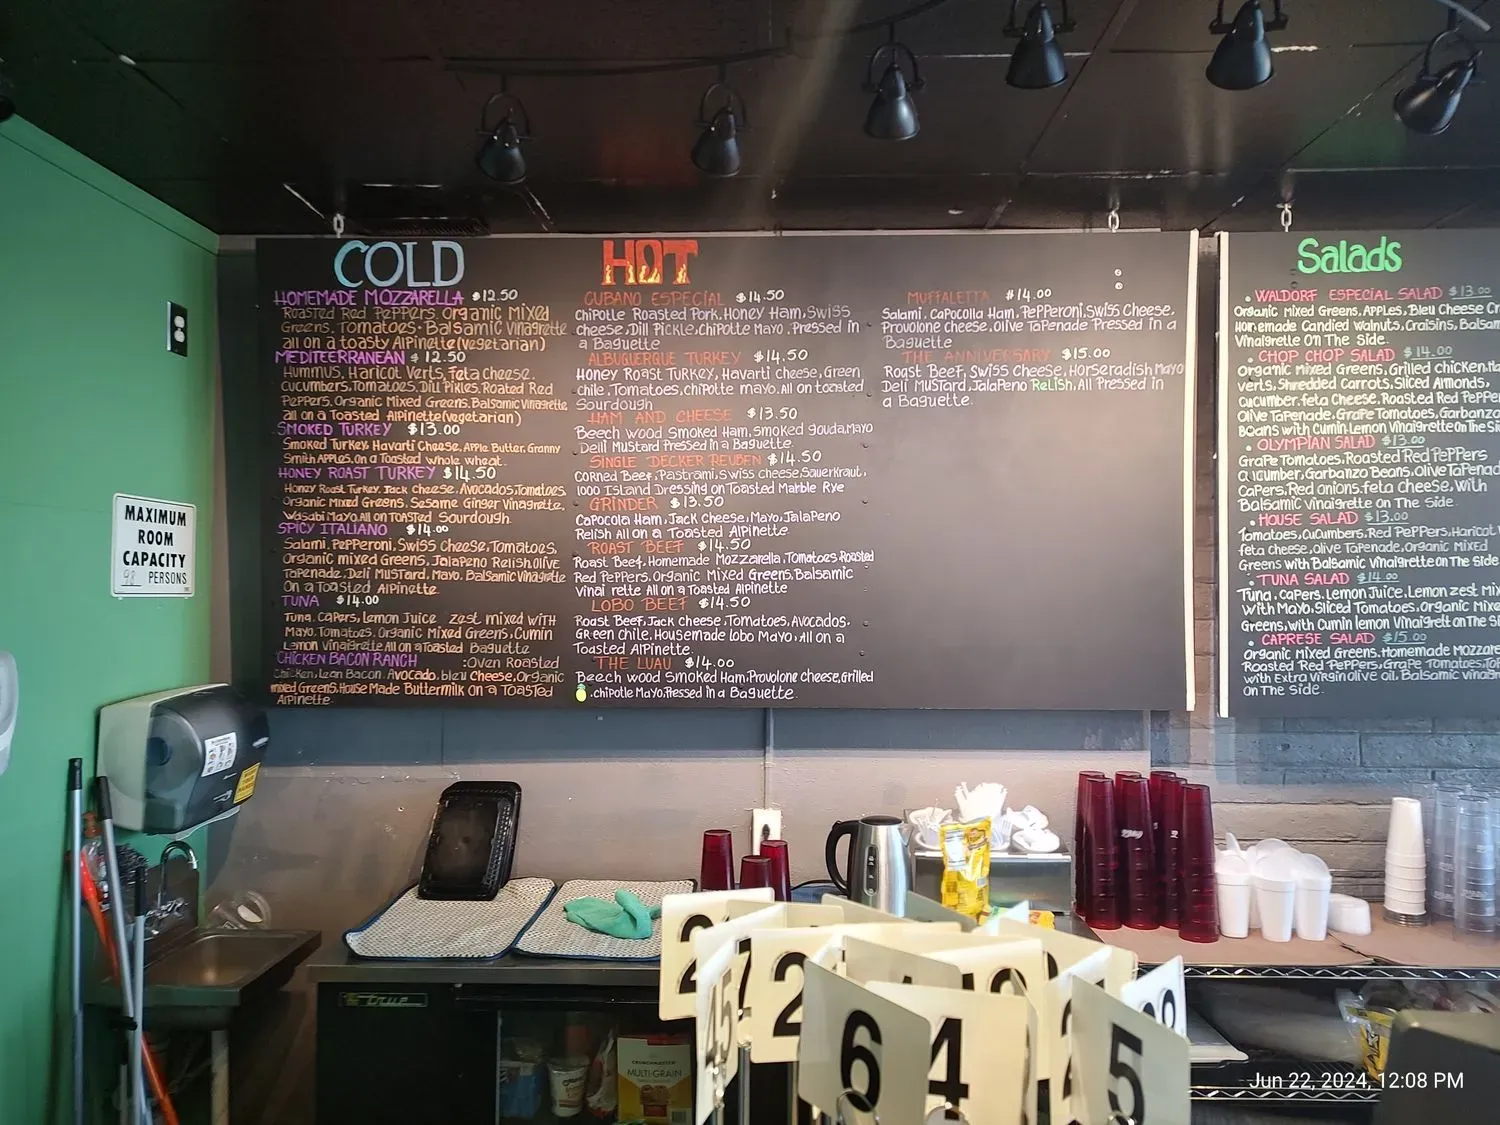 COLD
HOMEMADE MOZZARELLA $12.50
Roasted Red Peppers, Organic Mixed
Greens, Tomatoes, Balsamic Vinaigrette
all on a toasty Alpinette (vegetarian)
MEDITEERRANEAN $12.50
Hummus, Haricot Verts, feta cheese,
cucumbers, Tomatoes, Dill Pickles, Roated Red
Peppers, Organic Mixed Greens, Balsamic Vinaigrette
all on a Toasted Alpinette (vegetarian)
SMOKED TURKEY $13.00
Smoked Turkey, Havarti Cheese, Apple Butter, Granny
Smith APPLES, On a Toasted whole wheat.
HONEY ROAST TURKEY $14.50
Honey Roast Turkey, Jack Cheese, Avocados, Tomatoes,
Organic Mixed Greens, Sesame Ginger Vinaigrette,
Wasabi Mayo, All on TOASTED Sourdough.
SPICY ITALIANO $14.00
Salami, Pepperoni, Swiss Cheese, Tomatoes,
Organic mixed Greens, Jalapeno Relish, Olive
Tapenade, Deli MUSTard, Mayo, Balsamic Vinaigrette
On a Toasted Alpinette.
TUNA $14.00
Tuna, Capers, Lemon Juice zest mixed with
Mayo, Tomatoes, Organic Mixed Greens, Cumin
Lemon Vinaigrette All on a Toasted Baguette
CHICKEN BACON RANCH :Oven Roasted
Chicken, Lean Bacon, Avocado, bleu Cheese, Organic
mixed Greens, House Made Buttermilk on a Toasted
Alpinette.
HOT
CUBANO ESPECIAL $14.50
Chipotle Roasted Pork, Honey Ham, Swiss
cheese, Dill Pickle, Chipotle Mayo, Pressed in
a Baguette
ALBUQUERQUE TURKEY $14.50
Honey Roast Turkey, Havarti Cheese, Green
chile, Tomatoes, chipotte mayo, All on toasted
Sourdough
HAM AND CHEESE $13.50
Beech wood Smoked Ham, Smoked gouda, Mayo
Delli Mustard Pressed in a Baguette.
SINGLE DECKER REUBEN $14.50
Corned Beef, Pastrami, Swiss cheese, Sauerkraut,
1000 Island Dressing on Toasted Marble Rye
GRINDER $13.50
Capocola Ham, Jack Cheese, Mayo, Jalapeno
Relish All on a Toasted Alpinette
ROAST BEEF $14.50
Roast Beef, Homemade Mozzarella, Tomatoes, Roasted
Red Peppers, Organic Mixed Greens, Balsamic
Vinai rette All on a Toasted Alpinette
LOBO BEEF $14.50
Roast Beef, Jack cheese, Tomatoes, Avocados,
Green chile, Housemade Lobo Mayo, All on a
Toasted Alpinette.
THE LUAU $14.00
Beech wood Smoked Ham, Provolone cheese, Grilled
, chipotle Mayo, Pressed in a Baguette.
MUFFALETTA $14.00
Salami, Capocolla Ham, Pepperoni, Swiss Cheese,
Provolone Cheese, Olive Tapenade Pressed in a
Baguette
THE ANNIVERSARY $15.00
Roast Beef, Swiss Cheese, Horseradish Mayo
Deli MUSTard, Jalapeno Relish, All Pressed in
a Baguette.
Salads
• WALDORF ESPECIAL SALAD $13.00
Organic Mixed Greens, Apples, Bleu Cheese Cr
Homemade Candied Walnuts, Craisins, Balsam
Vinaigrette On The Side.
• CHOP CHOP SALAD $14.00
Organic Mixed Greens, Grilled Chicken, Ha
verts, Shredded Carrots, Sliced Almonds,
Cucumber, feta Cheese, Roasted Red Peppe
Olive Tapenade, Grape Tomatoes, Garbanzo
Beans with Cumin Lemon Vinaigrette On The Si
• OLYMPIAN SALAD $13.00
Grape Tomatoes, Roasted Red Peppers
Cucumber, Garbanzo Beans, Olive Tapenad
Capers, Red onions, feta cheese, With
Balsamic Vinaigrette on The Side
• HOUSE SALAD $13.00
Tomatoes, cucumbers, Red Peppers, Haricot
feta cheese, olive Tapenade, Organic Mixed
Greens with Balsamic Vinaigrette on The Side
• TUNA SALAD $14.00
Tuna, Capers, Lemon Juice, Lemon zest mix
With Mayo, Sliced Tomatoes, Organic Mixe
Greens, with Cumin lemon Vinaigrett on The Si
• CAPRESE SALAD $15.00
Organic Mixed Greens, Homemade Mozzare
Roasted Red Peppers, Grape Tomatoes, To
with Extra Virgin olive oil, Balsamic Vinaigr
On The Side.
MAXIMUM
ROOM
CAPACITY
98 PERSONS
true
CRUNCHMASTER
MULTI-GRAIN
2
45
2
6
4
5
Jun 22, 2024, 12:08 PM